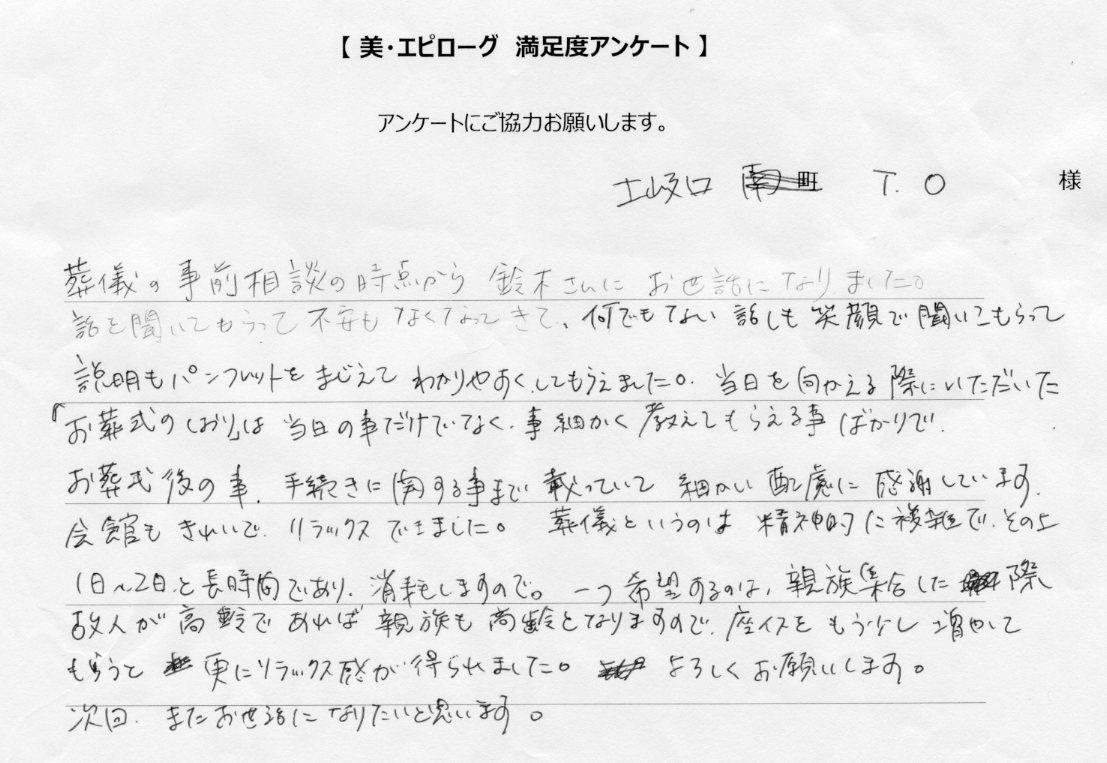 【 美・エピローグ 満足度アンケート 】
アンケートにご協力お願いします。
土岐口 T.O 様
葬儀の事前相談の時点から 鈴木さんに お世話になりました。
話を聞いてもらって 不安もなくなってきて、何でもない 話しも 笑顔で 聞いてもらって
説明もパンフレットを まじえて わかりやすく、してもらえました。当日を向かえる 際にいただいた
『お葬式のしおり』は 当日の事だけでなく、事細かく 教えてもらえる事 ばかりで、
お葬式後の事、手続きに関する事まで 載っていて 細かい 配慮に 感謝しています。
会館も きれいで、リラックス できました。 葬儀というのは 精神的に複雑で、その上
1日〜2日と長時間であり、消耗しますので。一つ 希望するのは、親族集合した 際
故人が 高齢で あれば 親族も 高齢となりますので、座イスを もう少し 増やして
もらうと 更にリラックス感が 得られました。 よろしく お願いします。
次回、またお世話に なりたいと思います。